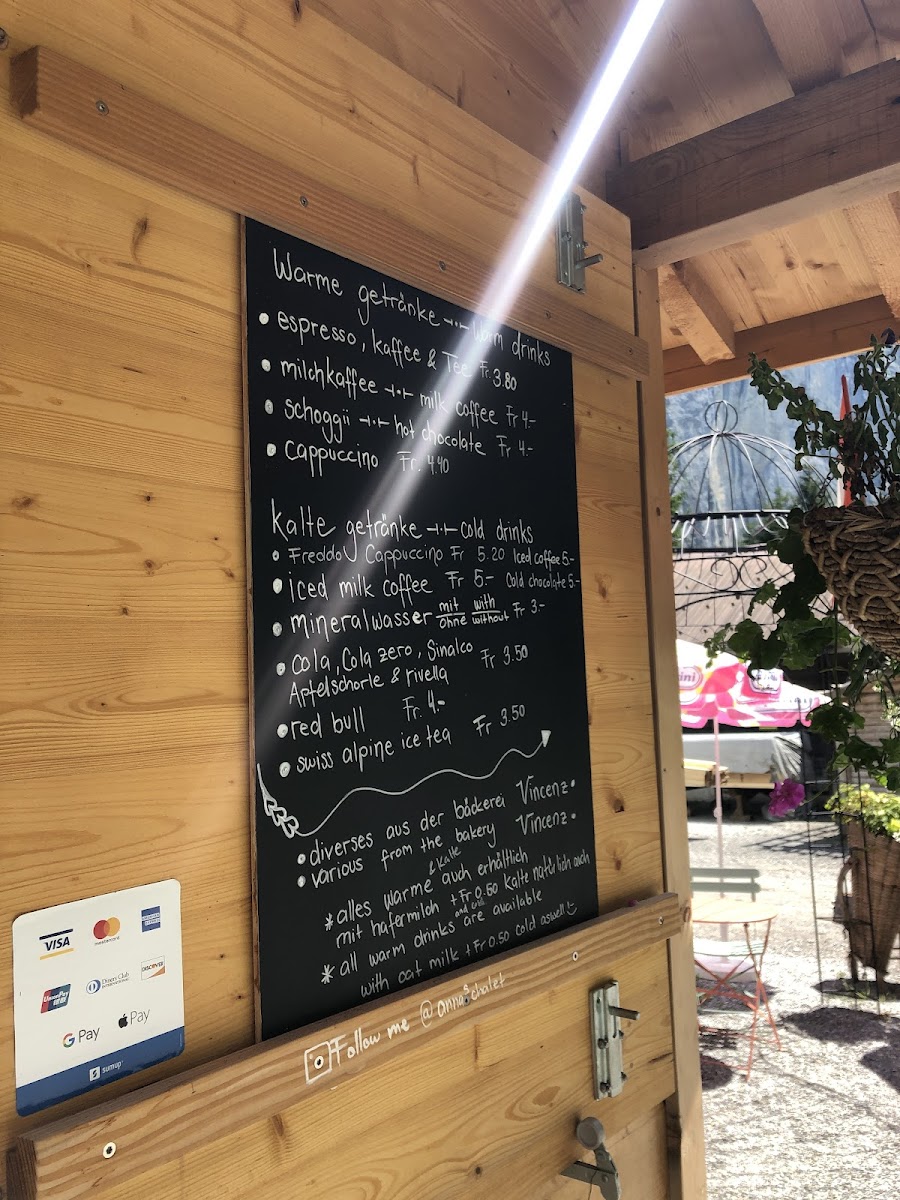 Warme getränke -·- Warm drinks
• espresso, kaffee & Tee Fr. 3.80
• milchkaffee -·- milk coffee Fr 4-
• schoggii -·- hot chocolate Fr 4.-
• cappuccino Fr. 4.40
kalte getränke -·- cold drinks
• Freddo Cappuccino Fr 5.20 Iced coffee 5-
• iced milk coffee Fr 5.- cold chocolate 5-
• mineralwasser mit/ohne with/without Fr 3-
• cola, Cola zero, Sinalco Fr 3.50
Apfelschorle & rivella
• red bull Fr. 4.-
• swiss alpine ice tea Fr 3.50
• diverses aus der bäckerei Vincenz •
• various from the bakery Vincenz •
*alles warme & kalte auch erhältlich
mit hafermilch + Fr 0.50 kalte natürlich auch
* all warm drinks and cold are available
with oat milk + Fr 0.50 cold aswell
Follow me @annaschalet
VISA mastercard AMERICAN EXPRESS
UnionPay Diners Club INTERNATIONAL DISCOVER
G Pay Pay
sumup